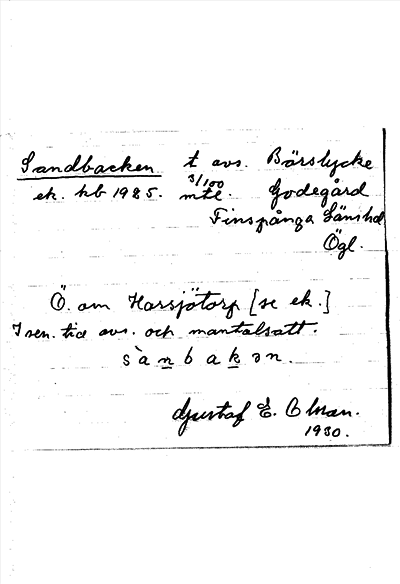 Sandbacken t avs. Bärslycke
ek. hb 1925. 3/100 mtl. Godegård
Finspånga Länshd
Ögl.
Ö. om Horsjötorp [se ek.]
I sen. tid avs. och mantalsatt.
sànbakən.
Gustaf E. Olsson.
1930.